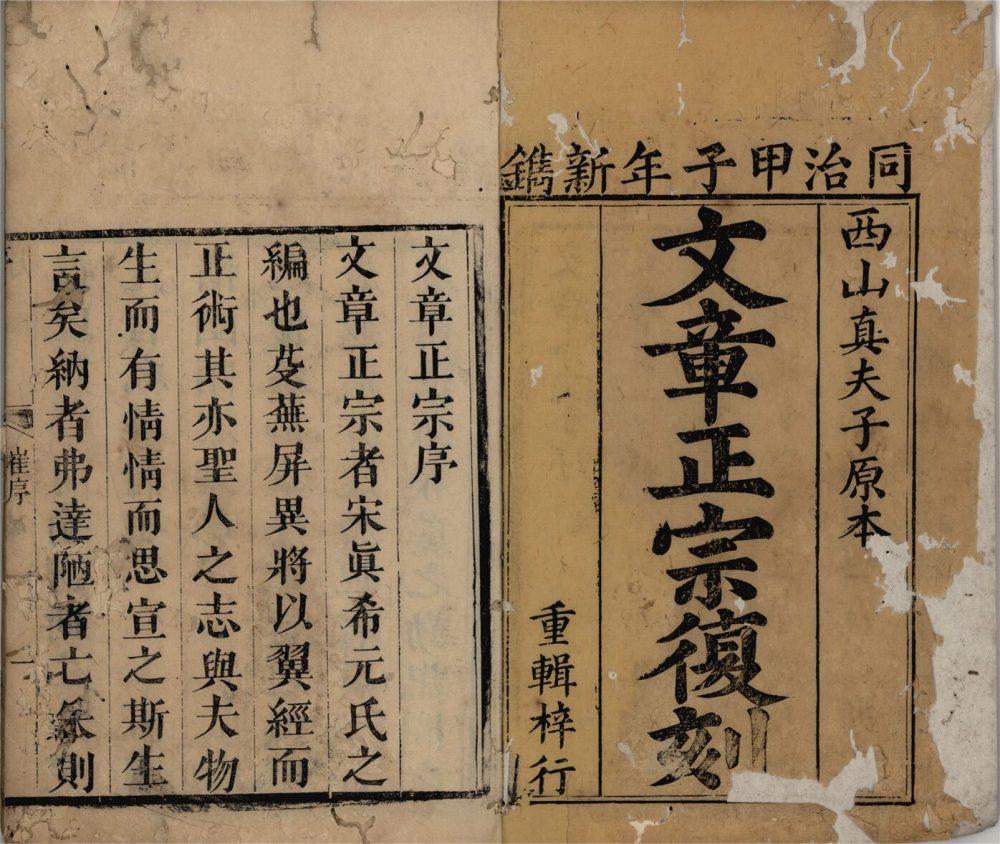 同治甲子年新鐫
西山真夫子原本
文章正宗復刻
重輯梓行
文章正宗序
文章正宗者宋眞希元氏之
編也芟蕪屏異將以翼經而
正術其亦聖人之志與夫物
生而有情情而思宣之斯生
言矣納者弗達陋者亡
則
崔序
一